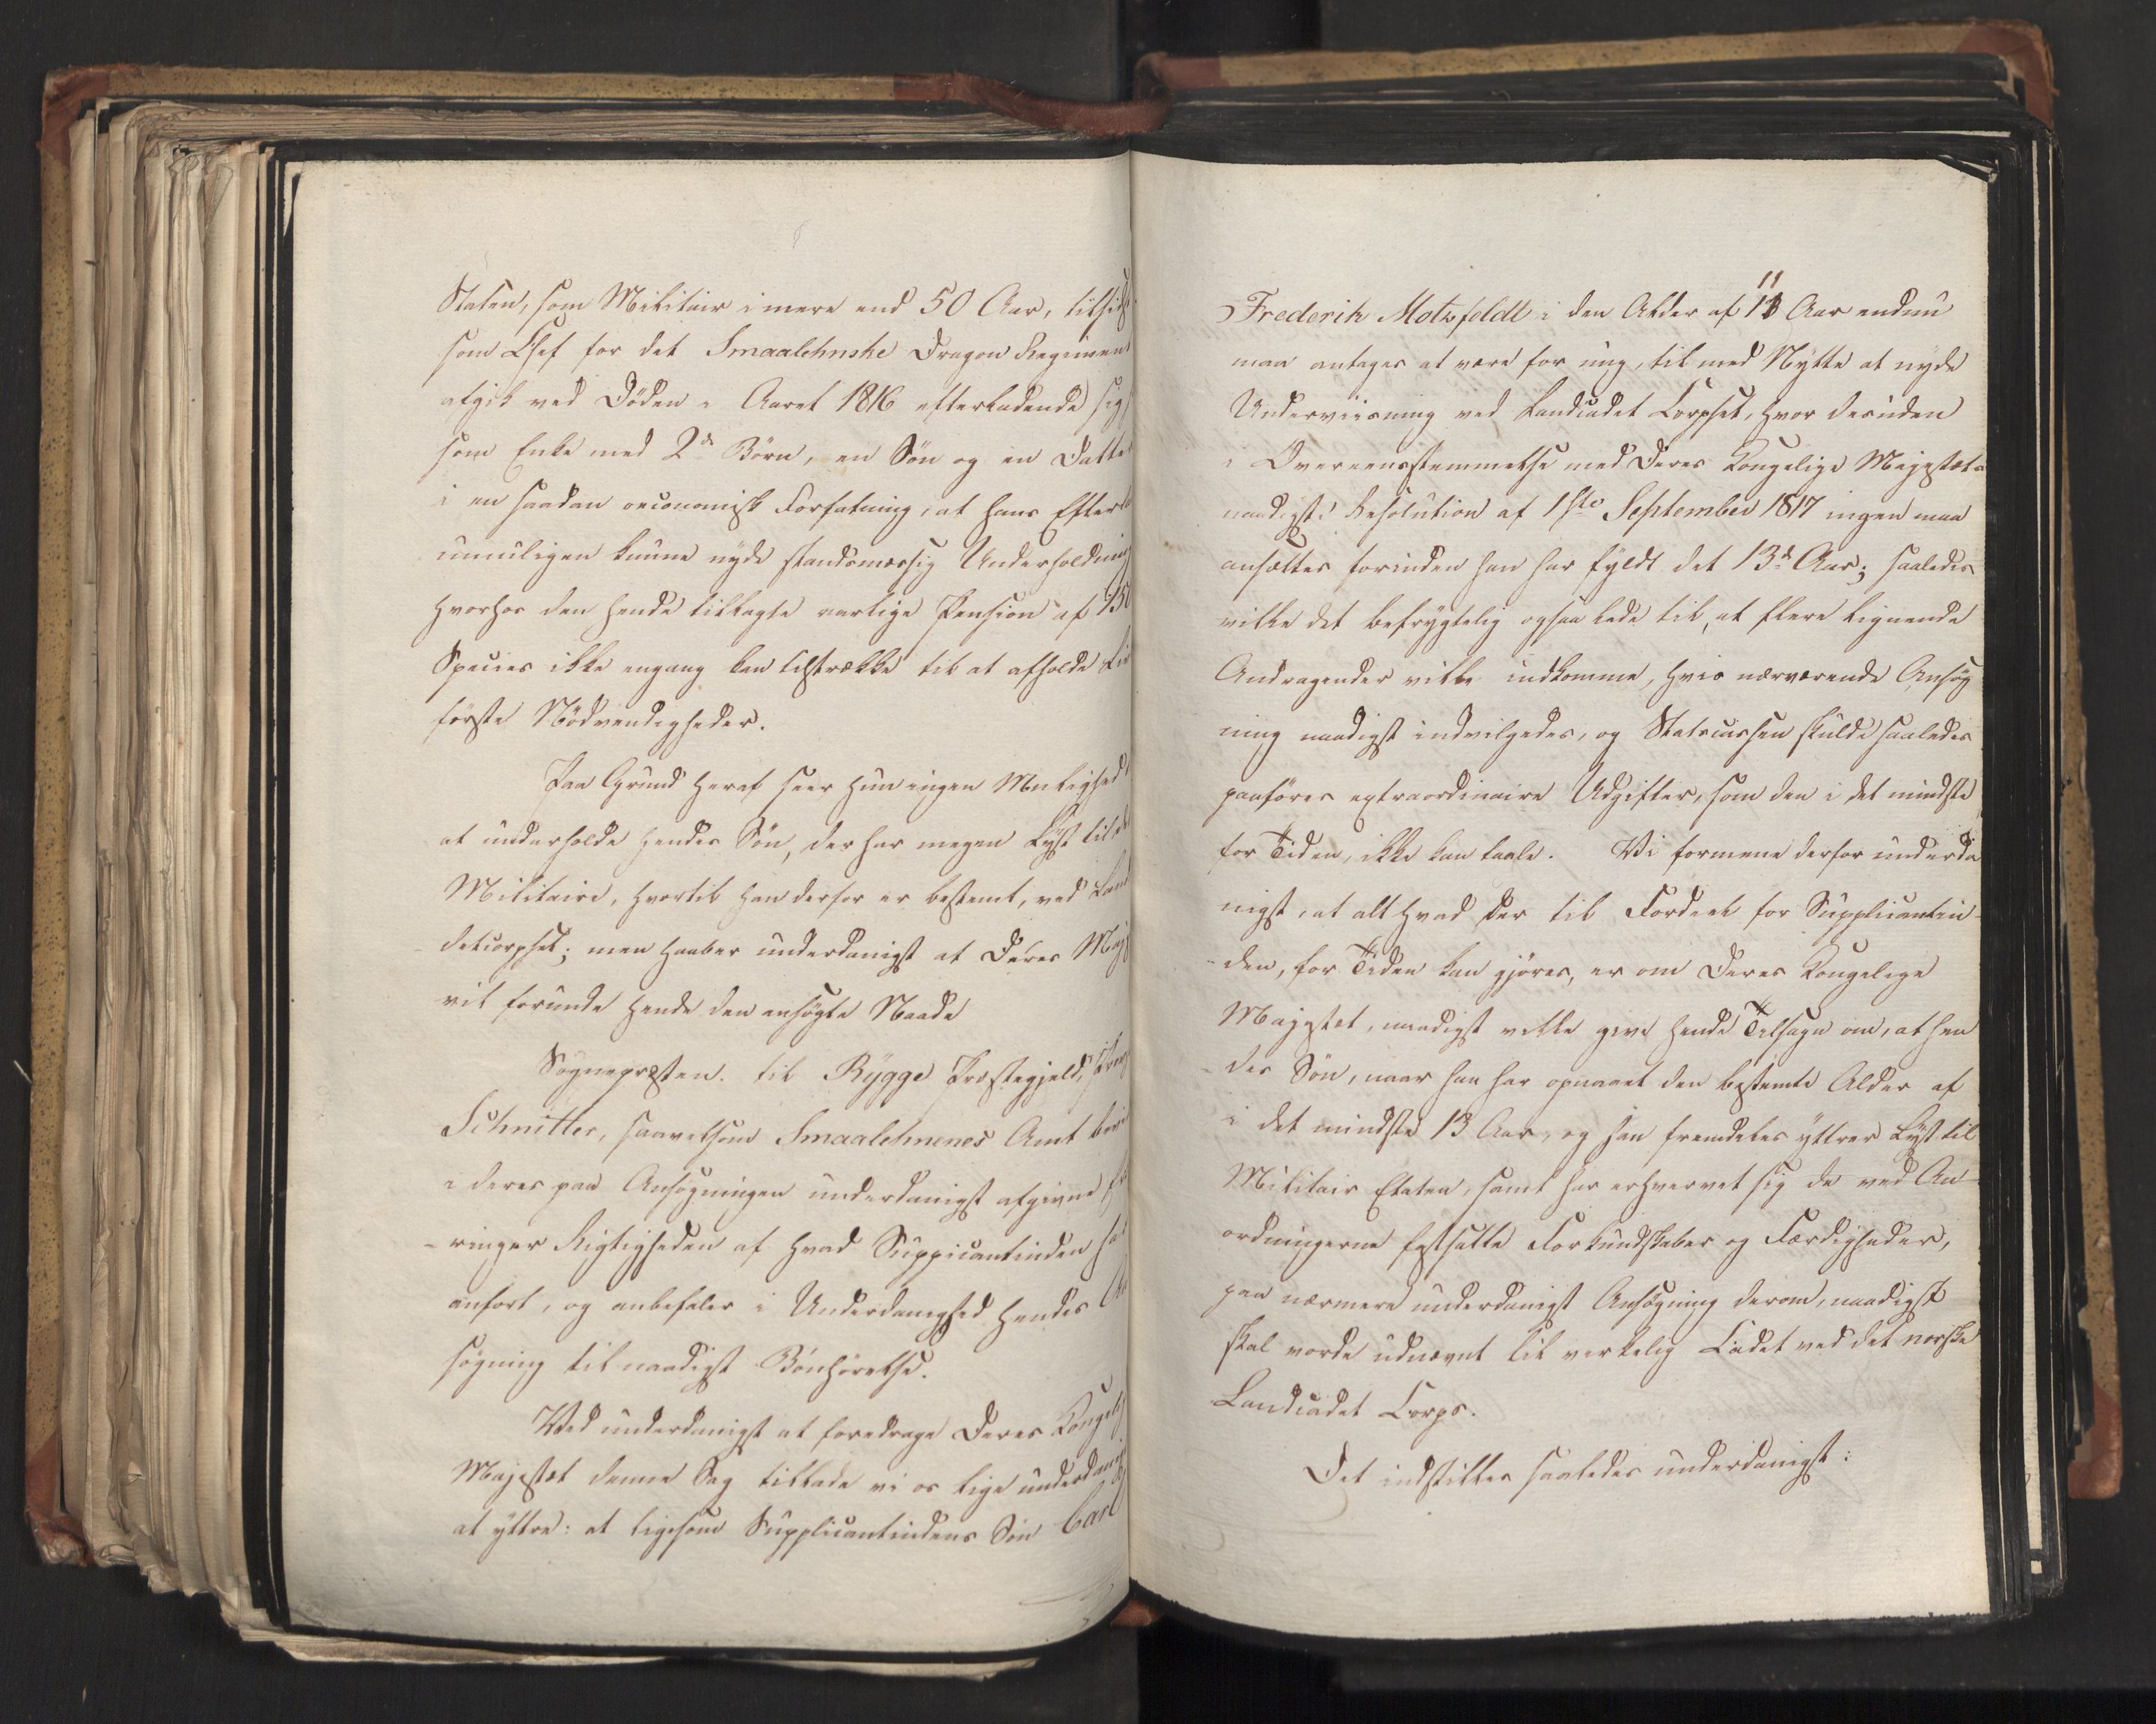 Staten, som Militair i mere end 50 Aar, tilsidst
som Chef for det Smaalehnske Dragon Regiment
afgik ved Döden i Aaret 1816 efterladende sig
som Enke med 2de Börn, en Sön og en Datter
i en saadan oeconomisk Forfatning, at hans Efterl
umuligen kunne nyde standsmæssig Underholdning
hvorhos den hende tillagte aarlige Pension af 150
Species ikke engang kan tilstrække til at afholde
förste Nödvendigheder.
Paa Grund heraf seer hun ingen Mulighed
at underholde hendes Sön, der har megen Lyst til det
Militaire, hvortil han derfor er bestemt, ved Land
detcorpset; men haaber underdanigst at Deres Maj
vil forunde hende den ansögte Naade
Sognepræsten til Rygge Præstegjeld,
Schnitler, saavelsom Smaalehnenes Amt
i deres paa Ansögningen underdanigst afgivne
-ringer Rigtigheden af hvad Suppicantinden
anfort, og anbefaler i Underdanighed hendes
sögning til naadigst Bönhörelse.
Ved underdanigst at foredrage Deres Kongelig
Majestæt denne Sag tillade vi os lige underdanigst
at yttre: at ligesom Supplicantindens Sön Carl
Frederik Motzfeldt i den Alder af 11 Aar endnu
maa antages at være for ung, til med Nytte at nyde
Underviisning ved Landcadet Corpset, hvor desuden
i Overeensstemmelse med Deres Kongelige Majestæts
naadigste Resolution af 1ste September 1817 ingen maa
ansættes forinden han har fyldt det 13de Aar; saaledes
ville det befrygtelig ogsaa lede til, at flere lignende
Andragender ville indkomme, hvis nærværende Ansög
ning naadigst indvilgedes, og Statscassen skulde saaledes
paaföres extraordinaire Udgifter, som den i det mindste
for Tiden, ikke kan taale. Vi formene derfor underda
nigst, at alt hvad der til Fordeel for Supplicantin-
-den, for Tiden kan gjöres, er om Deres Kongelige
Majestæt, naadigst ville give hende Tilsagn om, at hen
-des Sön, naar han har opnaaet den bestemte Alder af
i det mindste 13 Aar, og han fremdeles yttrer Lyst til
Militair Etaten, samt har erhvervet sig de ved An-
ordningerne fastsatte Forkundskaber og Færdigheder,
paa nærmere underdanigst Ansögning derom, naadigst
skal vorde udnævnt til verkelig Cadet ved det norske
Landcadet Corps.
Det indstilles saaledes underdanigst: